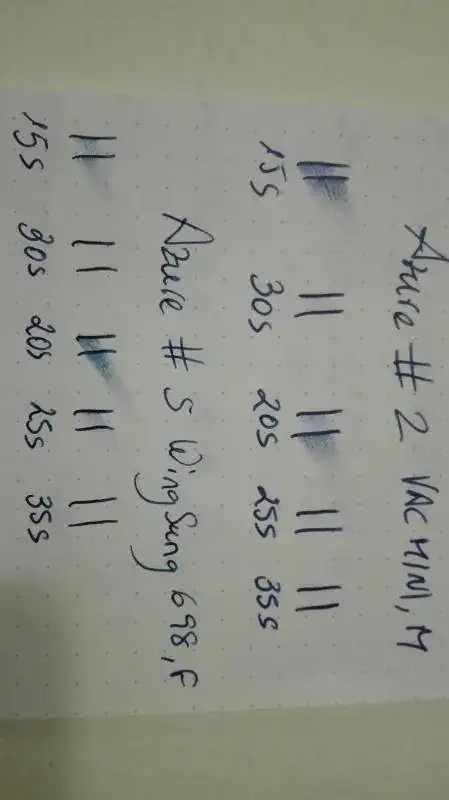 Azure # 2 VAC MINI, M
15s 30s 20s 25s 35s
Azure # 5 WingSung 698, F
15s 30s 20s 25s 35s